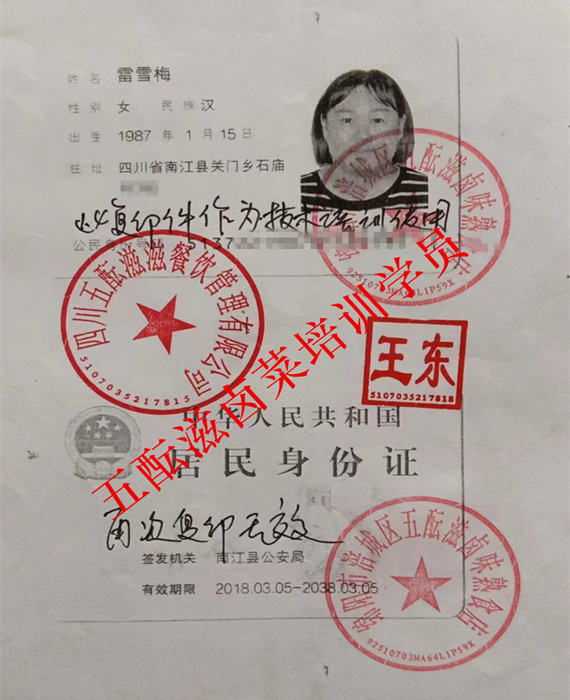 姓名 雷雪梅
性别 女 民族 汉
出生 1987 年 1 月 15 日
住址 四川省南江县关门乡石庙
此复印件作为技术培训使用
公民身份号码 5137
绵阳市涪城区五酝滋卤味熟食店
92510703MA64L1P59X
四川五酝滋滋餐饮管理有限公司
5107035217815
王东
5107035217818
五酝滋卤菜培训学员
中华人民共和国
居民身份证
再次复印无效
签发机关 南江县公安局
有效期限 2018.03.05-2038.03.05
绵阳市涪城区五酝滋卤味熟食店
92510703MA64L1P59X